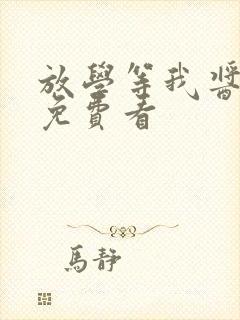 放學等我醬
免費看
馬靜